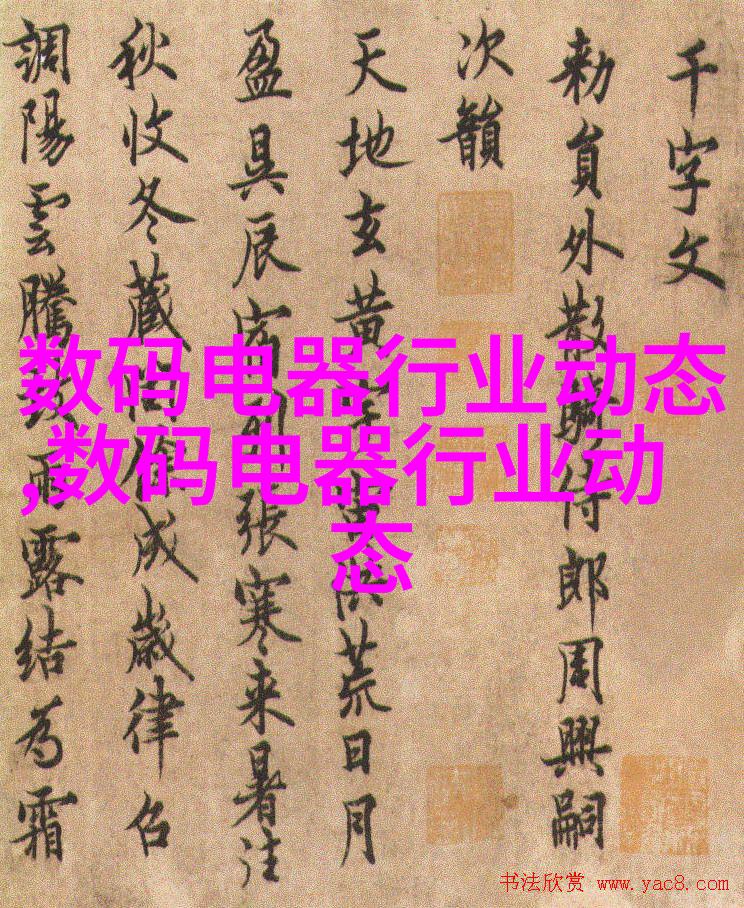 千字文
勑員外散騎侍郎周興嗣
次韻
天地玄黄洪荒日月
盈昃辰宿列張寒来暑往
秋收冬藏成歲律召
調陽雲騰雨露結為霜
数码电器行业动态
,数码电器行业动
态
书法欣赏 www.yac8.com